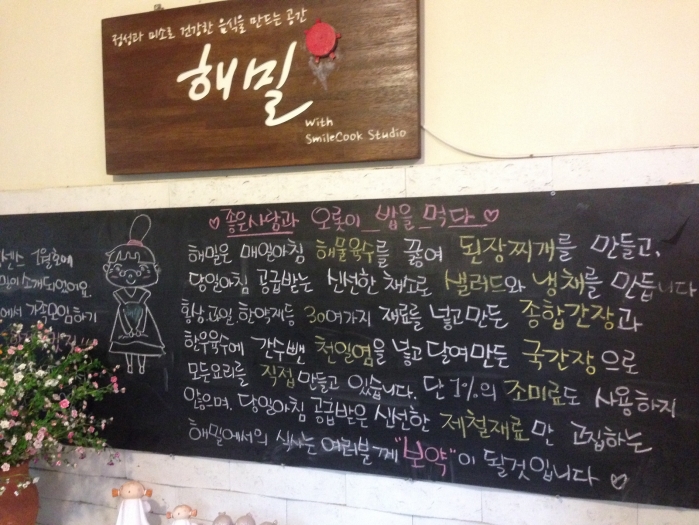 정성과 미소로 건강한 음식을 만드는 공간
해밀
with
SmileCook Studio
♡좋은사람과 오롯이 밥을 먹다♡
해밀은 매일아침 해물육수를 끓여 된장찌개를 만들고,
당일아침 공급받는 신선한 채소로 샐러드와 냉채를 만듭니다
황상과일, 한약재등 30여가지 재료를 넣고 만든 종합간장과
한우육수에 간수뺀 천일염을 넣고 달여만든 국간장으로
모든요리를 직접 만들고 있습니다. 단 1%의 조미료도 사용하지
않으며, 당일아침 공급받은 신선한 제철재료만 고집하는
해밀에서의 식사는 여러분께 "보약"이 될것입니다 ♡
센스 1월호에
소개되었어요
에서 가족모임하기